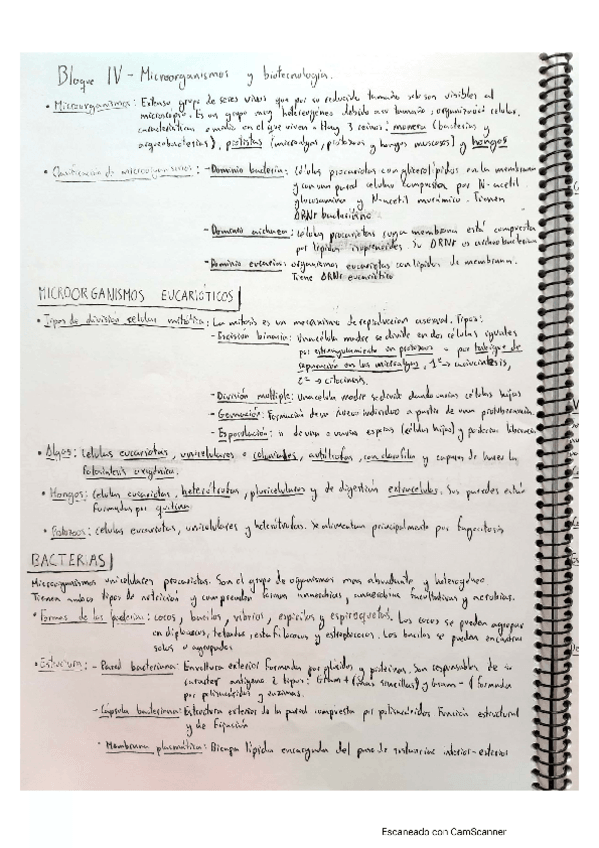 Bloque IV - Microorganismos y biotecnología.
• Microorganismos: Extenso grupo de seres vivos que por su reducido tamaño solo son visibles al
microscopio. Es un grupo muy heterogéneo debido a su tamaño, organización celular,
características o medio en el que viven. Hay 3 reinos: monera (bacterias y
arqueobacterias), protistas (microalgas, protozoos y hongos mucosos) y hongos
• Clasificación de microorganismos: - Dominio bacteria: células procariotas con glicerolípidos en la membrana
y con una pared celular compuesta por N-acetil
glucosamina y N-acetil murámico. Tienen
ARNr bacteriano
- Dominio archaea: células procariotas cuya membrana está compuesta
por lípidos isoprenoides. Su ARNr es
- Dominio eucarya: organismos eucariotas con lípidos de membrana.
Tiene ARNr eucariótico
MICROORGANISMOS EUCARIÓTICOS
• Tipos de división celular mitótica: La mitosis es un mecanismo de reproducción asexual. Tipos:
- Escisión binaria: Una célula madre se divide en dos células iguales
por estrangulamiento en protozoos o por tabique de
separación en las microalgas. 1º → cariocinesis,
2º → citocinesis.
- División múltiple: Una célula madre se divide dando varias células hijas
- Gemación: Formación de un nuevo individuo a partir de una protuberancia.
- Esporulación: de una o varias esporas (células hijas) y posterior liberación
• Algas: células eucariotas, unicelulares o coloniales, autótrofas, con clorofila y capaces de hacer la
fotosíntesis oxigénica.
• Hongos: células eucariotas, heterótrofas, pluricelulares y de digestión extracelular. Sus paredes están
formadas por quitina
• Protozoos: células eucariotas, unicelulares y heterótrofas. Se alimentan principalmente por fagocitosis
BACTERIAS
Microorganismos unicelulares procariotas. Son el grupo de organismos más abundante y heterogéneo.
Tienen ambos tipos de nutrición y comprenden formas anaerobias, anaerobias facultativas y aerobias.
• Formas de las bacterias: cocos, bacilos, vibrios, espirilos y espiroquetas. Los cocos se pueden agrupar
en diplococos, tétradas, estafilococos y estreptococos. Los bacilos se pueden encontrar
solos o agrupados
• Estructura: - Pared bacteriana: Envoltura exterior formada por glúcidos y proteínas. Son responsables de su
carácter antígeno 2 tipos: Gram + (más sencillas) y Gram - (formada
por polisacáridos y enzimas.
- Cápsula bacteriana: Estructura exterior de la pared compuesta por polisacáridos Función estructural
y de fijación
- Membrana plasmática: Bicapa lipídica encargada del paso de sustancias interior-exterior
Escaneado con CamScanner